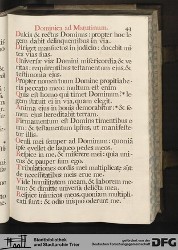 Dominica ad Matutinum. 44
Dulcis & rectus Dominus: propter hoc le
gem dabit delinquentibus in via.
Dirigit mansuetos in judicio: docebit mi
tes vias suas.
Universæ viæ Domini misericordia & ve
ritas: requirentibus testamentum ejus, &
testimonia ejus.
Propter nomen tuum Domine propitiabe-
ris peccato meo: multum est enim.
Quis est homo qui timet Dominum: le
gem statuit in via, quam elegit.
Anima ejus in bonis demorabitur: & se
men ejus hereditabit terram.
Firmamentum est Dominus timentibus e
um: & testamentum ipsius, ut manifeste
tur illis.
Oculi mei semper ad Dominum: quoniã
ipse evellet de laqueo pedes meos.
Respice in me, & miserere mei: quia uni
cus & pauper sum ego.
Tribulationes cordis mei multiplicatæ sūt
de necessitatibus meis erue me.
Vide humilitatem meam, & laborem me
um: & dimitte universa delicta mea.
Respice inimicos meos, quoniam multipli
cati sunt: & odio iniquo oderunt me.
Staatsbibliothek
und Stadtarchiv Trier
gefördert von der
Deutschen Forschungsgemeinschaft
DFG